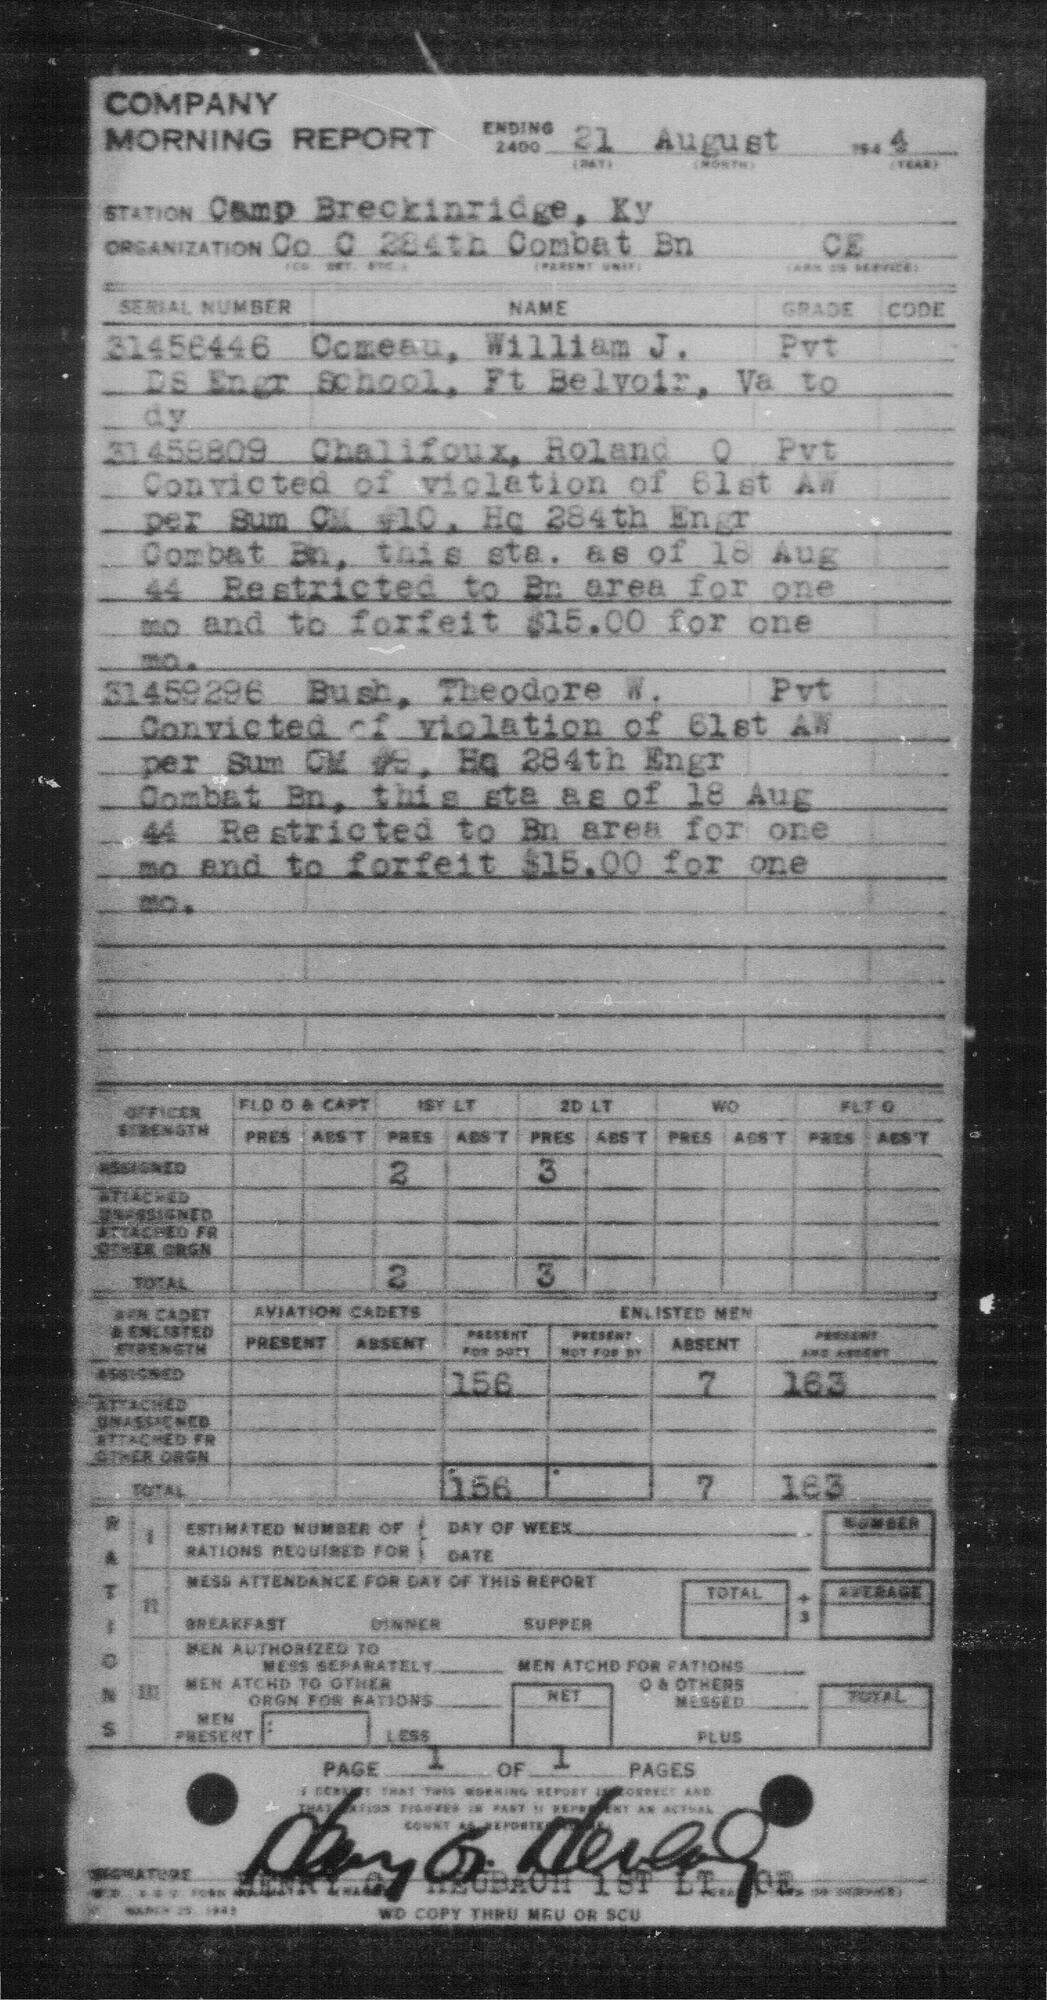 COMPANY
MORNING REPORT ENDING 2400 21 August 1944
(DAY) (MONTH) (YEAR)
STATION Camp Breckinridge, Ky
ORGANIZATION Co C 284th Combat Bn CE
(CO. DET. ETC.) (PARENT UNIT) (ARM OR SERVICE)
SERIAL NUMBER NAME GRADE CODE
31456446 Comeau, William J. Pvt
DS Engr School, Ft Belvoir, Va to
dy
31458809 Chalifoux, Roland O Pvt
Convicted of violation of 61st AW
per Sum CM #10, Hq 284th Engr
Combat Bn, this sta. as of 18 Aug
44 Restricted to Bn area for one
mo and to forfeit $15.00 for one
mo.
31459296 Bush, Theodore W. Pvt
Convicted of violation of 61st AW
per Sum CM #9, Hq 284th Engr
Combat Bn, this sta as of 18 Aug
44 Restricted to Bn area for one
mo and to forfeit $15.00 for one
mo.
OFFICER STRENGTH FLD O & CAPT 1ST LT 2D LT WO FLT O
PRES ABS'T PRES ABS'T PRES ABS'T PRES ABS'T PRES ABS'T
ASSIGNED 2 3
ATTACHED UNASSIGNED
ATTACHED FR OTHER ORGN
TOTAL 2 3
AVN CADET & ENLISTED STRENGTH AVIATION CADETS ENLISTED MEN
PRESENT ABSENT PRESENT FOR DUTY PRESENT NOT FOR DY ABSENT PRESENT AND ABSENT
ASSIGNED 156 7 163
ATTACHED UNASSIGNED
ATTACHED FR OTHER ORGN
TOTAL 156 7 163
RATIONS
I ESTIMATED NUMBER OF RATIONS REQUIRED FOR DAY OF WEEK DATE NUMBER
II MESS ATTENDANCE FOR DAY OF THIS REPORT TOTAL ÷ 3 AVERAGE
BREAKFAST DINNER SUPPER
III MEN AUTHORIZED TO MESS SEPARATELY MEN ATCHD FOR RATIONS
MEN ATCHD TO OTHER ORGN FOR RATIONS NET O & OTHERS MESSED TOTAL
MEN PRESENT LESS PLUS
PAGE 1 OF 1 PAGES
I CERTIFY THAT THIS MORNING REPORT IS CORRECT AND
THAT RATION FIGURES IN PART II REPRESENT AN ACTUAL
COUNT AS REPORTED
SIGNATURE HENRY G. HEUBACH 1ST LT CE
MARCH 25, 1943
WD COPY THRU MRU OR SCU